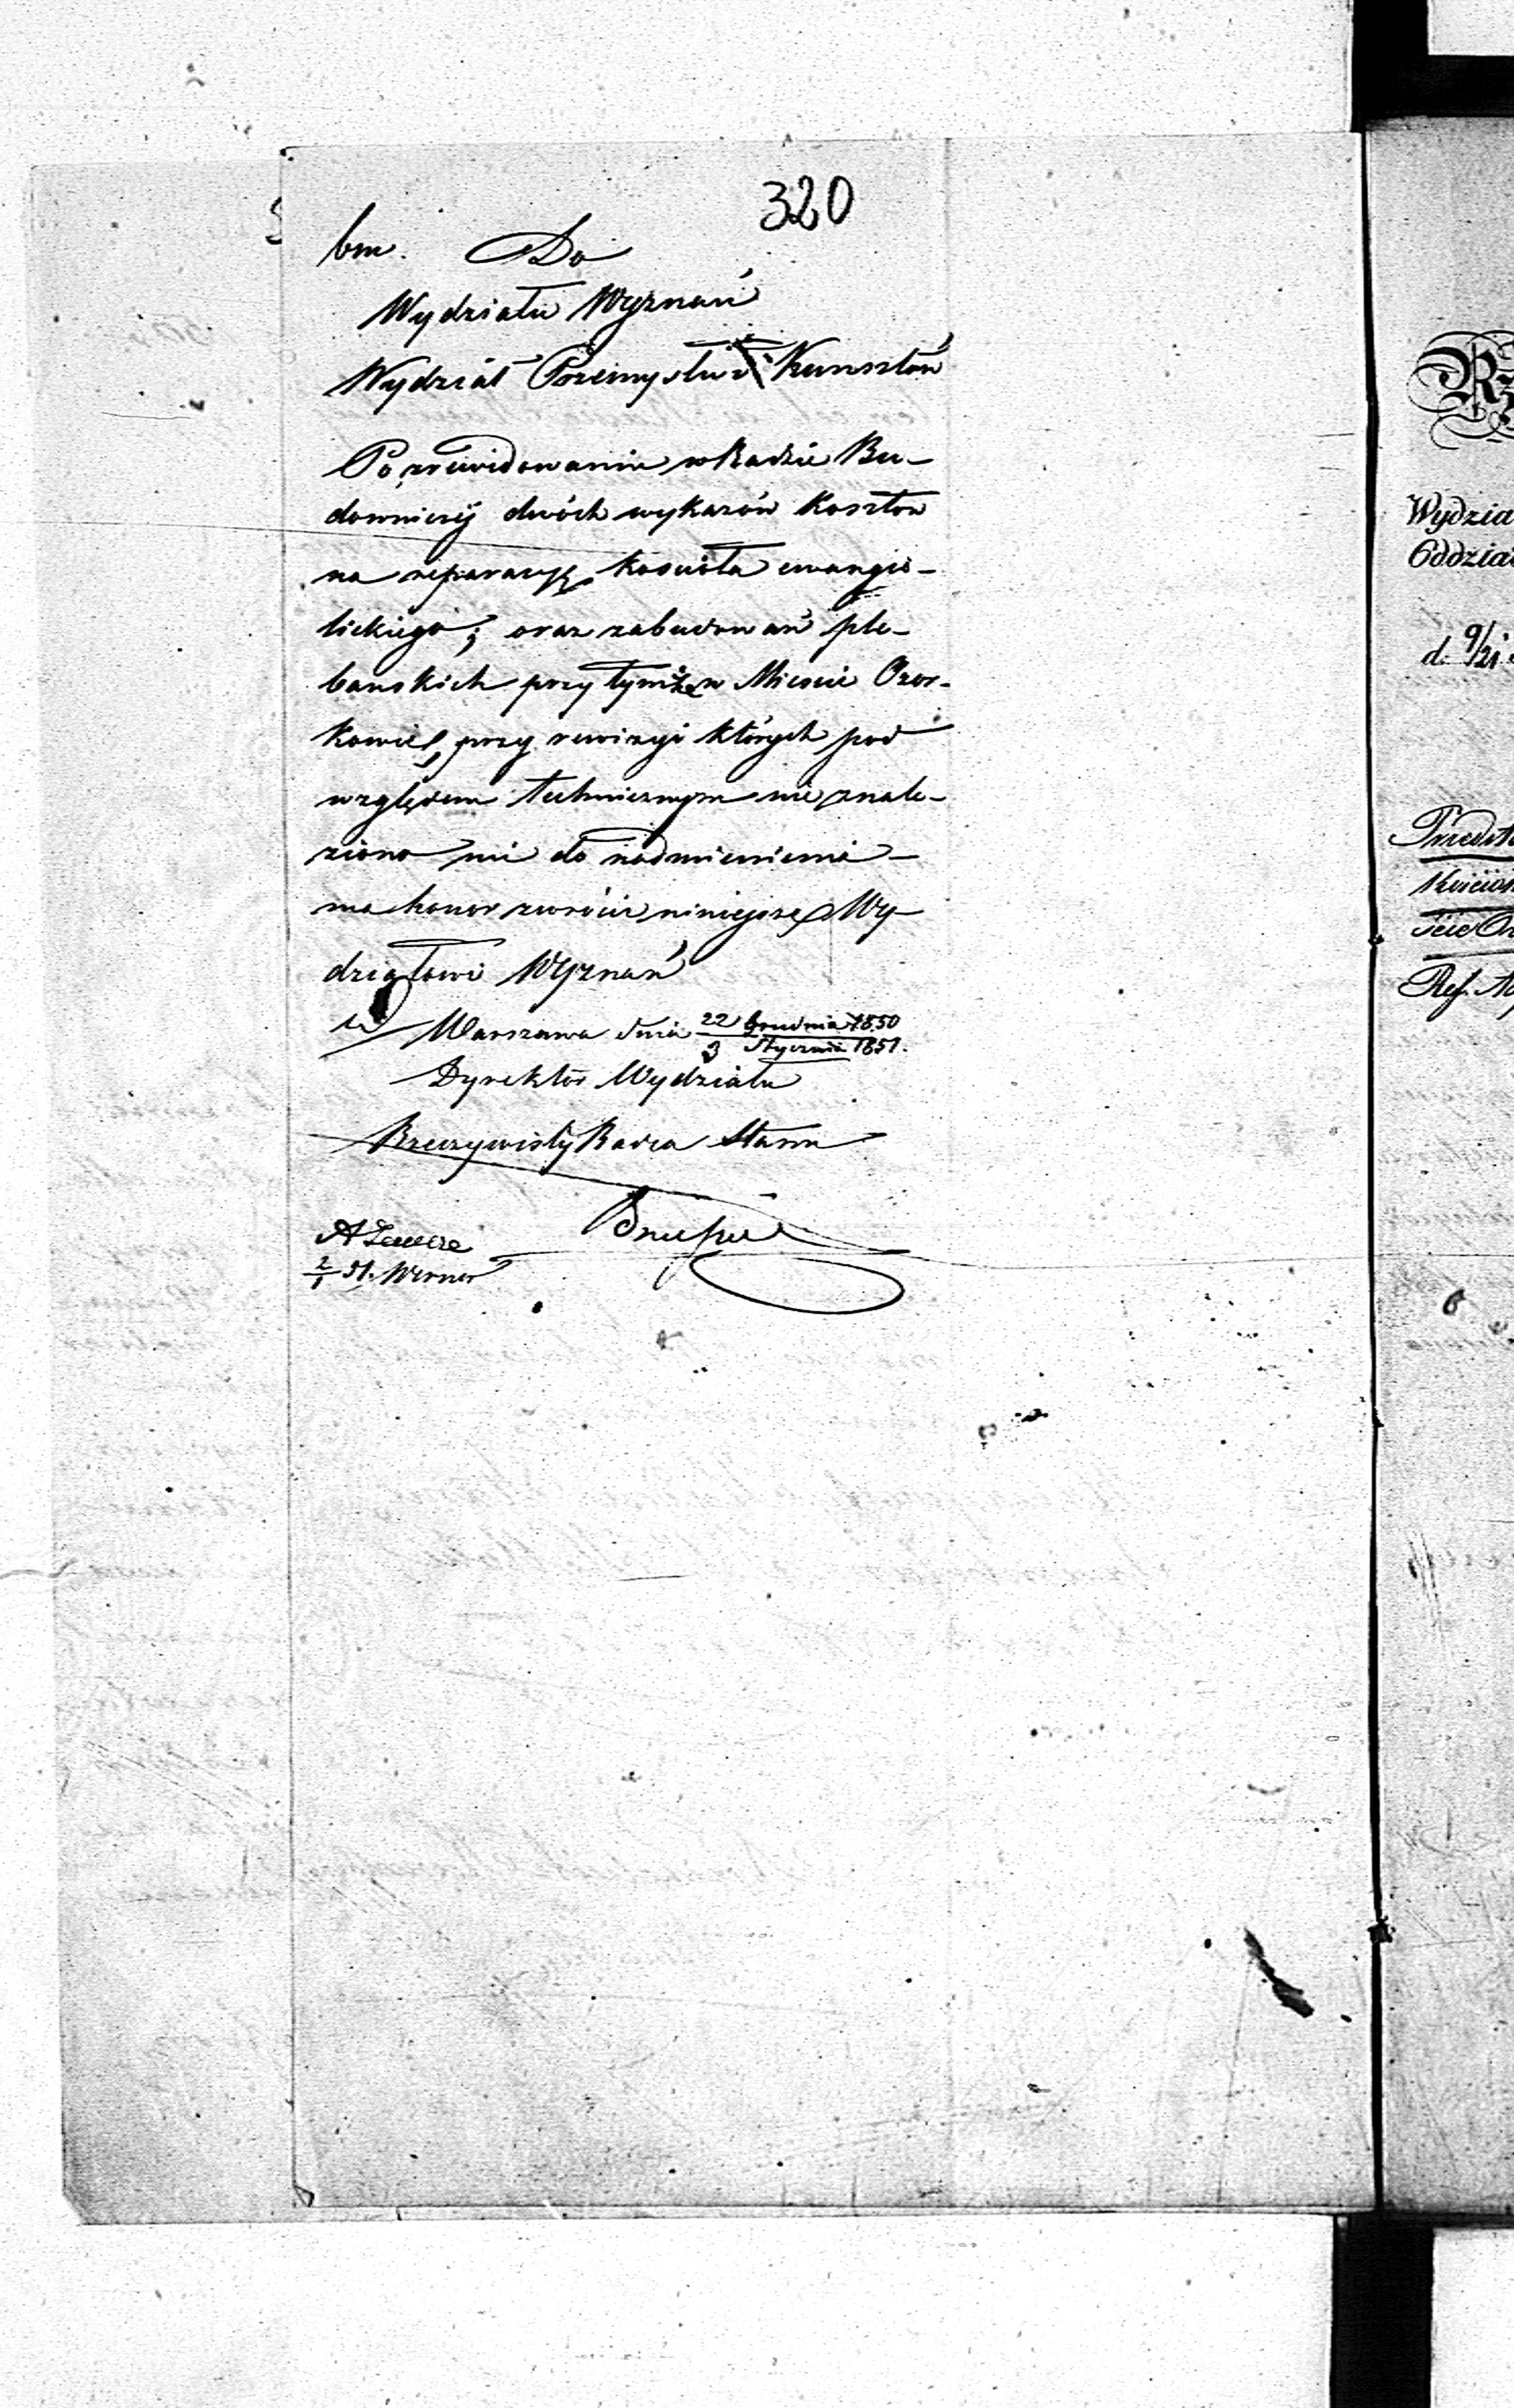 320
bm. Do
Wydziału Wyznań
Wydział Przemysłu i Kunsztów
Po zrewidowaniu w Radzie Bu-
downiczej dwóch wykazów kosztów
na reparacyę kościoła ewangie-
lickiego; oraz zabudowań ple-
bańskich przy tymże w Mieście Ozor-
kowie, przy rewizyi których pod
względem technicznym nie znale-
ziono nic do nadmienienia –
ma honor zwrócić niniejsze Wy-
działowi Wyznań
w Warszawa dnia 22 Grudnia 1850
3 Stycznia 1851.
Dyrektor Wydziału
Rzeczywisty Radca Stanu
2/1 51. Werner
Wydzia
Oddzia
d. 9/21
Przedst
Kościoł
ście Oz
Ref. N